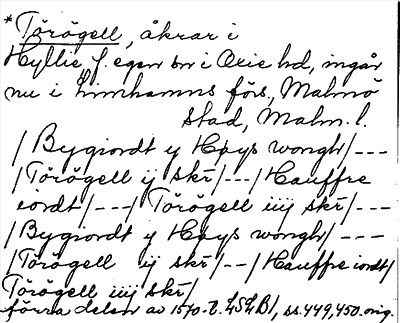 *Törögell, åkrar i
Hyllie f. egen sn i Oxie hd, ingår
nu i Limhamns förs., Malmö
stad, Malm. l.
/Bygiordt y Høys wongh/---
/Törögell ij skr/--/Hauffre
iordt/---/ Törögell iiij skr/---
/Bygiordt y Høys wongh/ ---
/Törögell ij skr/--/Hauffre iordt/
Törögell iiij skr/
förra delen av 1570-t. LSLB1, ss. 449, 450. orig.